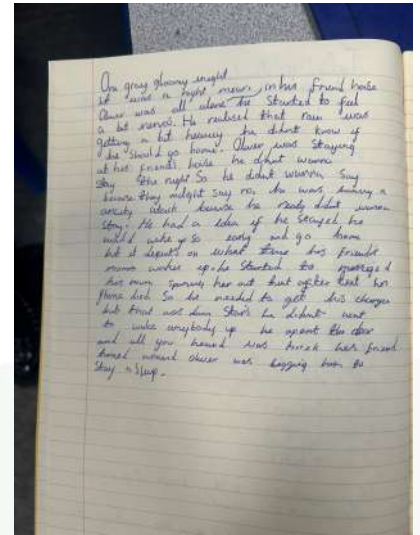 One gray gloomy night
it was a night mear in his friend house
Oliver was all alone he started to feel
a bit nervos. He realised that rain was
getting a bit heavey he didnt know if
he should go home. Oliver was staying
at his friends house he didnt wanna
stay the night So he didnt wanna say
because they midght say no, he was having a
anxity atack because he realy didnt wanna
stay. He had a idea if he stayed he
would wake up so early and go home
but it depents on what time his friends
mum wakes up. he started to
his mum her out but after that his
phone died So he needed to get his charger
but that was down stairs he didnt want
to wake anybody up he opent the door
and all you heard was his friend
turned around oliver was begging him to
stay a sleep.